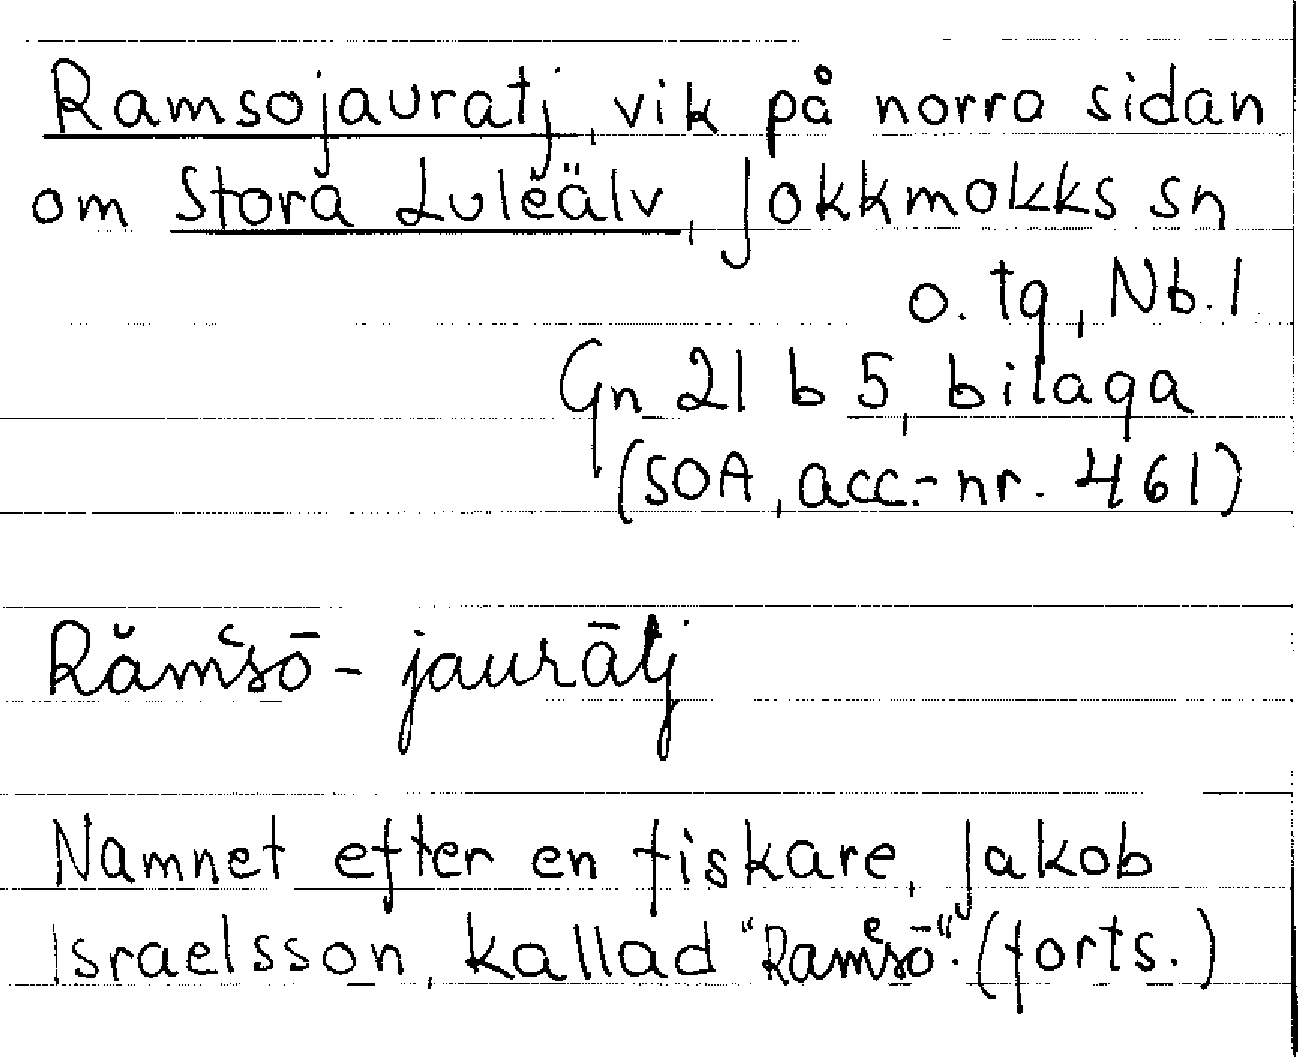 Ramsojauratj, vik på norra sidan
om Stora Luleälv, Jokkmokks sn
o. tg, Nb. l.
Gn 21 b 5, bilaga
(SOA, acc.-nr. 461)
Răm͑sō-jaurātj
Namnet efter en fiskare, Jakob
Israelsson, kallad "Ramͤsō". (forts.)